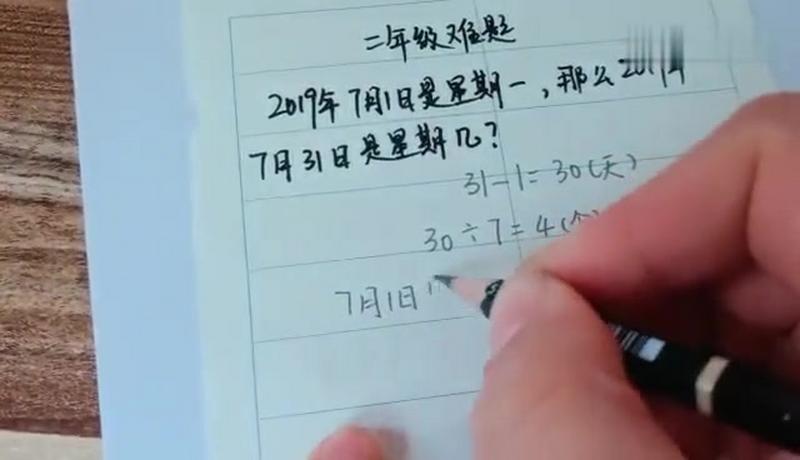 二年级难题
2019年7月1日是星期一,那么2019
7月31日是星期几?
31-1=30(天)
30÷7=4(个)
7月1日